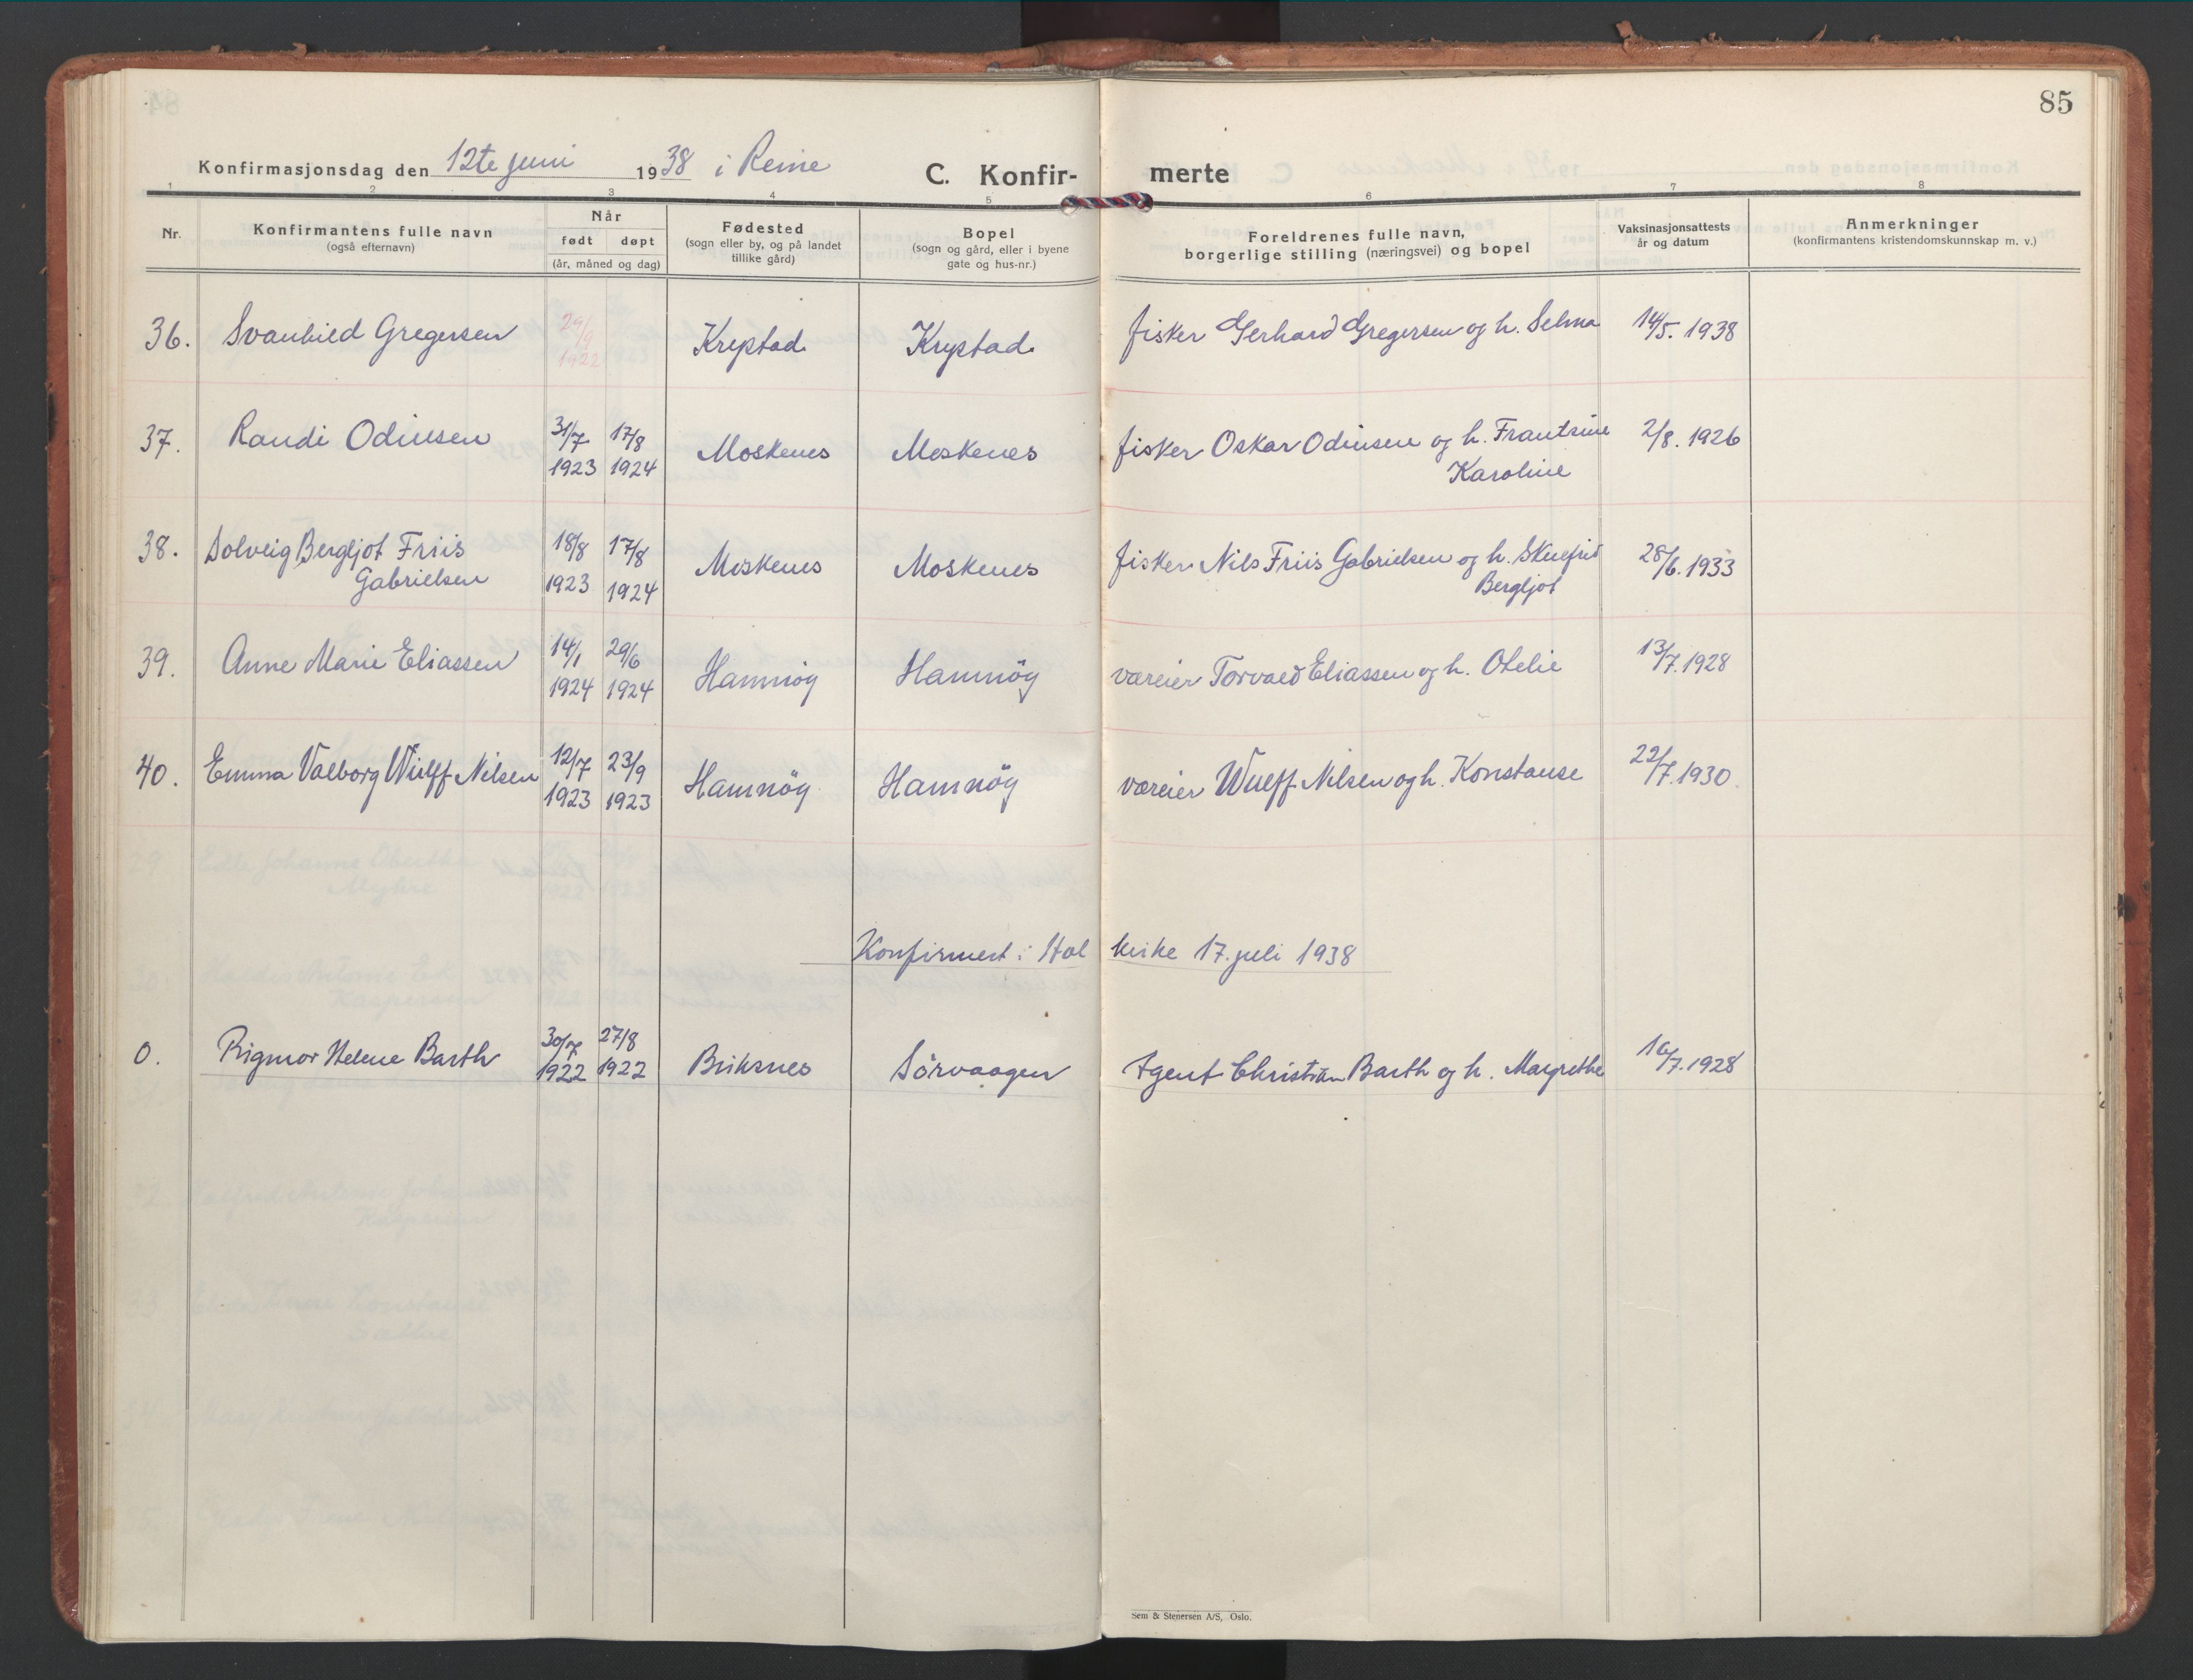 85
Konfirmasjonsdag den 12te juni 1938 i Reine
C. Konfir- merte
1 2 3 4 5 6 7 8
Nr.
Konfirmantens fulle navn
(også efternavn)
Når
født døpt
(år, måned og dag)
Fødested
(sogn eller by, og på landet
tillike gård)
Bopel
(sogn og gård, eller i byene
gate og hus-nr.)
Foreldrenes fulle navn,
borgerlige stilling (næringsvei) og bopel
Vaksinasjonsattests
år og datum
Anmerkninger
(konfirmantens kristendomskunnskap m. v.)
36. Svanhild Gregersen 29/9 1922 Krystad Krystad fisker Gerhard Gregersen og h. Selma 14/5. 1938
37. Randi Odinsen 31/7 1923 17/8 1924 Moskenes Moskenes fisker Oskar Odinsen og h. Frantsine 2/8. 1926
Karoline
38. Solveig Bergljot Friis 18/8 1923 17/8 1924 Moskenes Moskenes fisker Nils Friis Gabrielsen og h. 28/6. 1933
Gabrielsen Bergljot
39. Anne Marie Eliassen 14/1 1924 29/6 1924 Hamnöy Hamnöy væreier Torvald Eliassen og h. Otelie 13/7. 1928
40. Emma Valborg Wulff Nilsen 12/7 1923 23/9 1923 Hamnöy Hamnöy væreier Wulff Nilsen og h. Konstanse 22/7. 1930.
Konfirmert i Hol kirke 17. juli 1938
0. Rigmor Helene Barth 30/7 1922 27/8 1922 Buksnes Sörvaagen Agent Christian Barth og h. Margrethe 16/7. 1928
Sem & Stenersen A/S, Oslo.